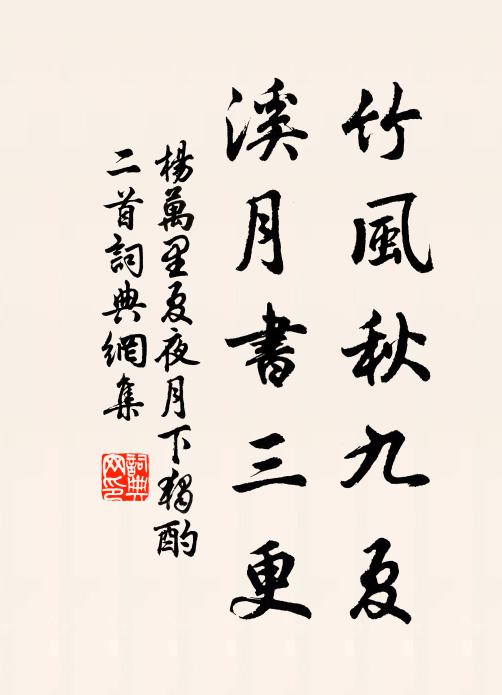 竹風秋九夏
溪月書三更
楊萬里夏夜月下獨酌
二首詞典網集
詞典
网印